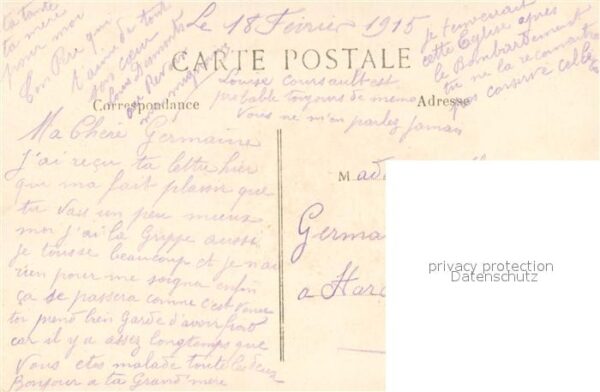 Le 18 Fevrier 1915
CARTE POSTALE
Correspondance
Adresse
Ma Chère Germaine
J'ai reçu ta lettre hier
que ma fait plaisir que
tu vas un peu mieux
moi j'ai la Grippe aussi
je tousse beaucoup et je n'ai
rien pour me soigner enfin
ça se passera comme c'est venu
toi prend bien Garde d'avoir froid
car il y a assez longtemps que
Vous etes malade toute les deux
Bonjour a ta Grand'mère
ta tante
ta mère
pour moi
Ton Père qui
t'aime de tout
son cœur
Louise Coursault est
probable toujours de meme
Vous ne m'en parlez jamais
Je t'envoie
cette Eglise apres
le Bombardement
tu ne la reconnaitra
pas conserve celle
Mad
Germa
a Har
privacy protection
Datenschutz